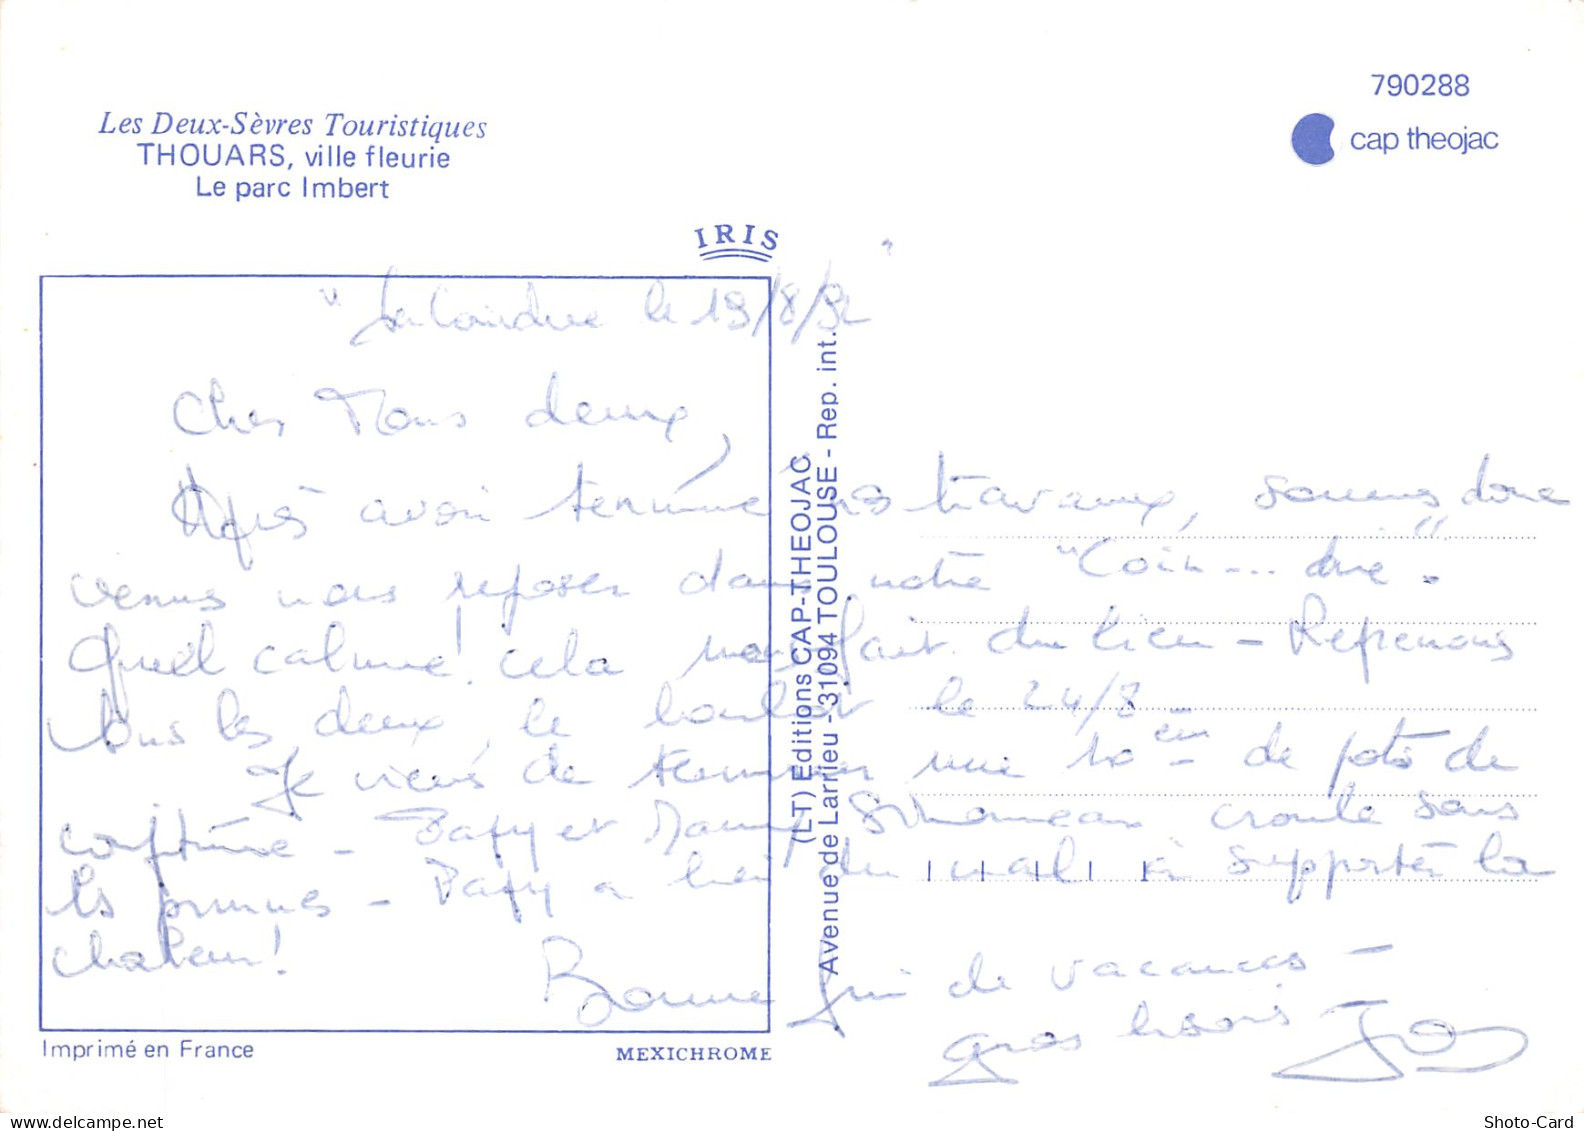 790288
cap theojac
Les Deux-Sèvres Touristiques
THOUARS, ville fleurie
Le parc Imbert
IRIS
" le 19/8/92 "
Chers Tous deux,
Après avoir terminé nos travaux, sommes donc
venus nous reposer dans notre "Coin... dre".
Quel calme! cela nous fait du bien - Reprenons
tous les deux, le boulot le 24/8
Je viens de terminer une 10èm de pots de
confiture - Papy et Mamy croule sous
les prunes - Papy a bien du mal à supporter la
chaleur!
Bonne fin de vacances -
gros bisous
(LT) Editions CAP-THEOJAC
Avenue de Larrieu - 31094 TOULOUSE - Rep. int.
Imprimé en France
MEXICHROME
www.delcampe.net
Shoto-Card